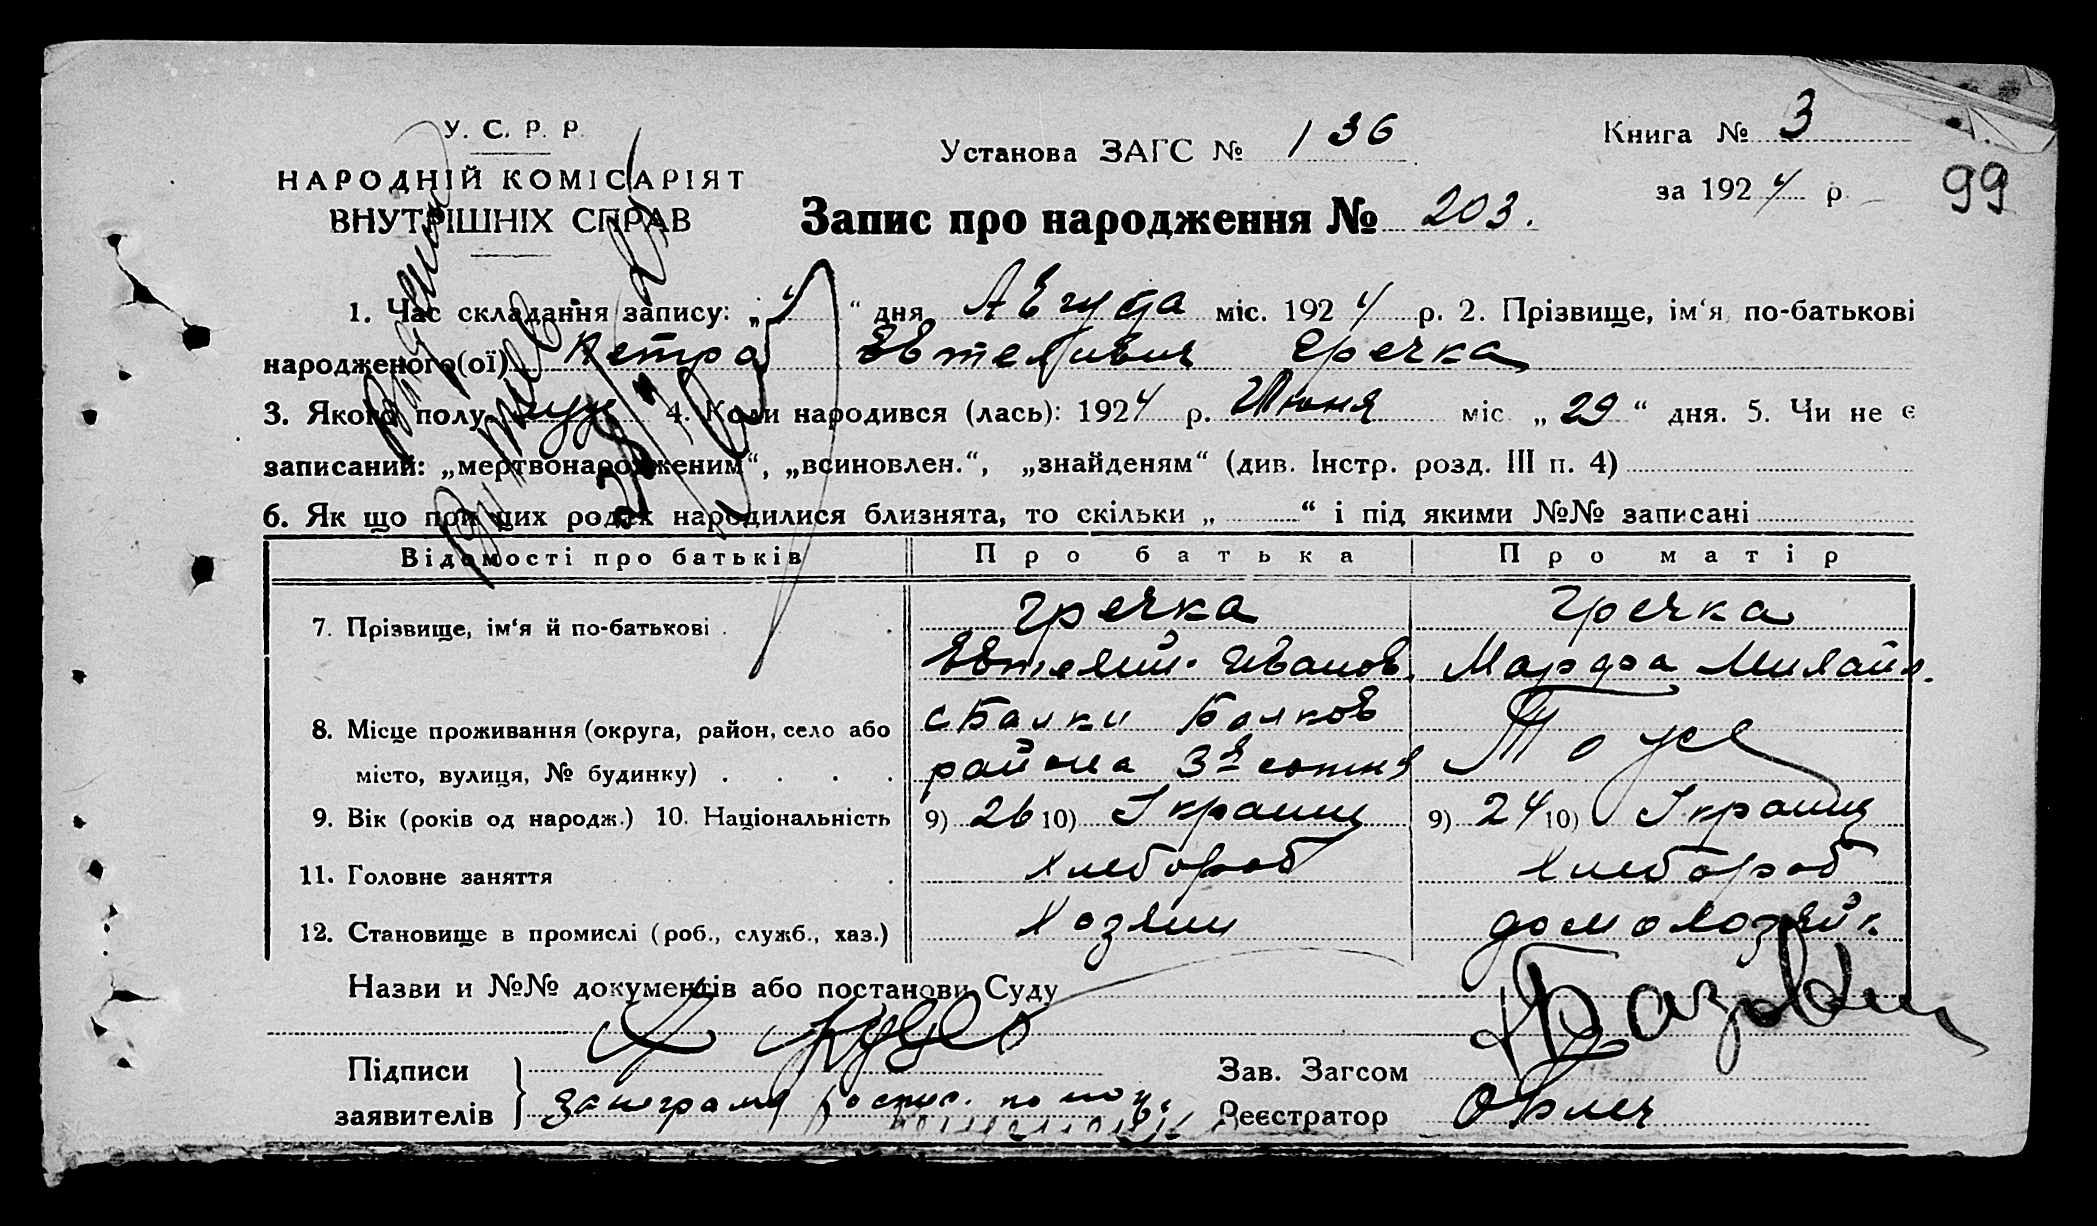 У. С. Р. Р.
НАРОДНІЙ КОМІСАРІЯТ
ВНУТРІШНІХ СПРАВ
Установа ЗАГС № 136
Книга № 3
за 1924 р.
99
Запис про народження № 203.
1. Час складання запису: „4“ дня Августа міс. 1924 р. 2. Прізвище, ім‘я, по-батькові
народженого(ої) Петра Евтехивич Гречка
3. Якого полу муж 4. Коли народився (лась): 1924 р. Июня міс. „29“ дня. 5. Чи не є
записаний: „мертвонародженим“, „всиновлен.“, „знайденям“ (див. Інстр. розд. III п. 4)
6. Як що при цих родах народилися близнята, то скільки „ “ і під якими №№ записані
Відомості про батьків Про батька Про матір
7. Прізвище, ім‘я й по-батькові Гречка Гречка
Евтехий Иванов. Марфа Михайл.
8. Місце проживання (округа, район, село або с Балки Балков
місто, вулиця, № будинку) района 3й сотня Тоже
9. Вік (років од народж.) 10. Національність 9) 26 10) Украинц 9) 24 10) Украинц
11. Головне заняття Хлебороб Хлебороб
12. Становище в промислі (роб., служб., хаз.) Хозяин домохозяйк
Назви и №№ документів або постанови Суду
Підписи
заявителів
Зав. Загсом
Реєстратор